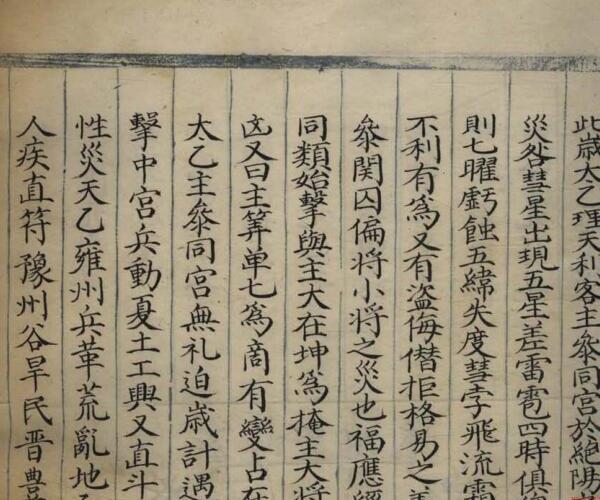 此歳太乙理天利客主叅同宫於絶陽
災咎彗星出現五星差雷雹四時俱
則七曜虧蝕五緯失度彗孛飛流
不利有為又有盜侮僣拒格易之
叅関囚偏将小将之災也福應
同類始擊與主大在坤為掩主大
凶又曰主筭单七為啇有變占在
太乙主叅同宫無礼迫歳計遇
擊中宫兵動夏土工興又直斗
性災天乙雍州兵革荒亂地
人疾直符豫州谷旱民晋豊